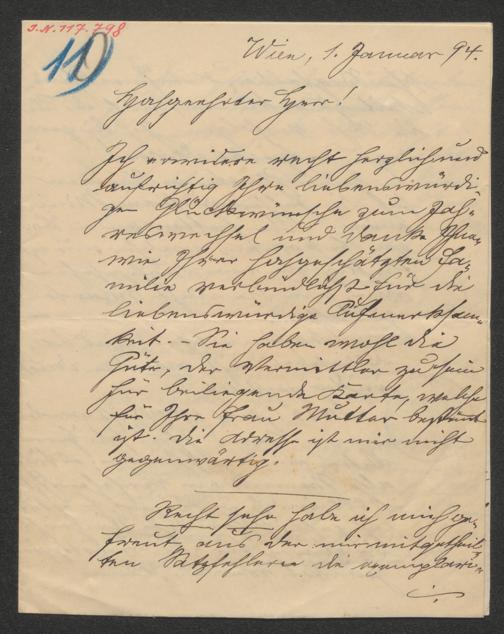 J.N. 117.798
11
Wien, 1. Januar 94.
Hochgeehrter Herr!
Ich erwidere recht herzlich und
aufrichtig Ihre liebenswürdi-
gen Glückwünsche zum Jah-
reswechsel und danke Ihnen
wie Ihrer hochgeschätzten Fa-
milie verbindlichst für die
liebenswürdige Aufmerksam-
keit. - Sie haben wohl die
Güte, der Vermittler zu sein
für beiliegende Karte, welche
für Ihre Frau Mutter bestimmt
ist. Die Adresse ist mir nicht
gegenwärtig.
Recht sehr habe ich mich ge-
freut aus den mir mitgetheil-
ten Satzfehlern die exemplari-